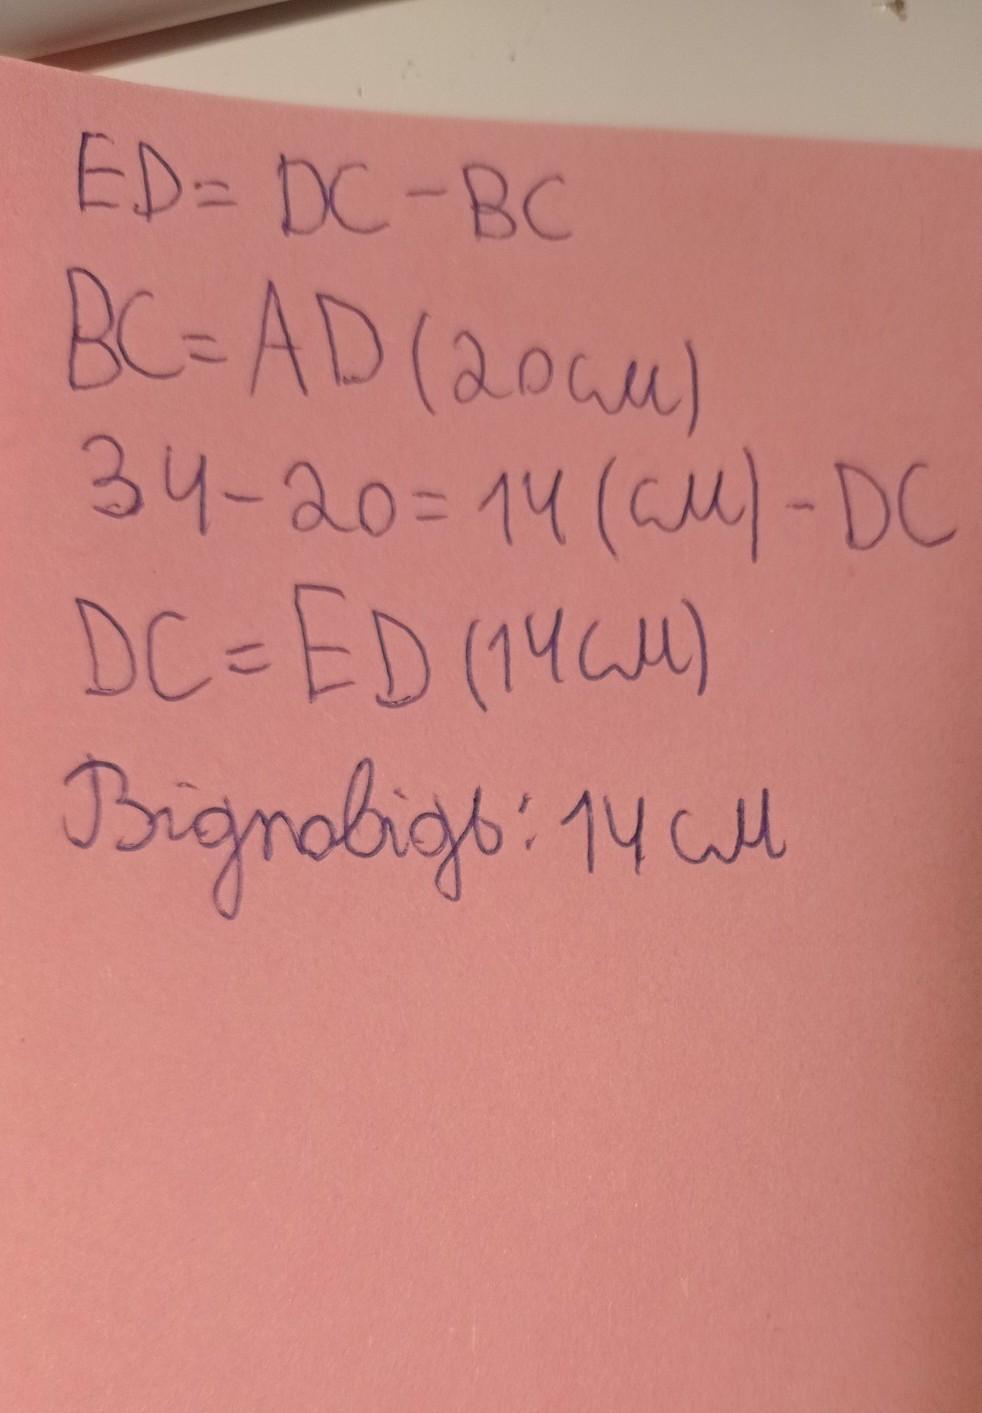 ED = DC - BC
BC = AD (20см)
34 - 20 = 14 (см) - DC
DC = ED (14см)
Відповідь: 14 см